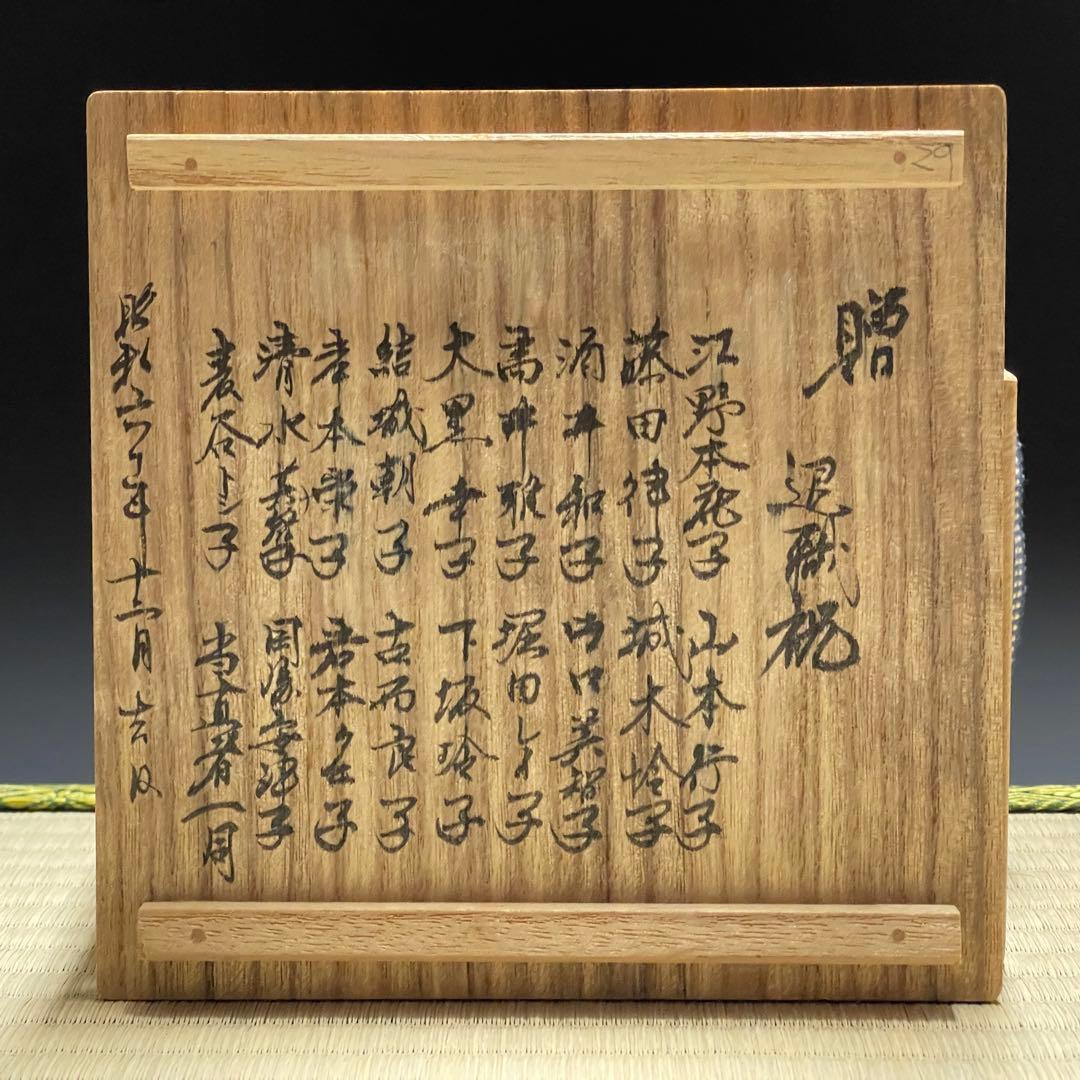 贈
退職祝
江野本花子 山本行子
藤田律子 城木怜子
酒井和子 山口美智子
高井雅子 堀田しげ子
大黒幸子 下坂玲子
結城朝子 古西良子
岸本栄子 岩本夕を子
清水美智子 岡湯安津子
麦谷トシ子 当直者一同
昭和六十年十二月吉日
29